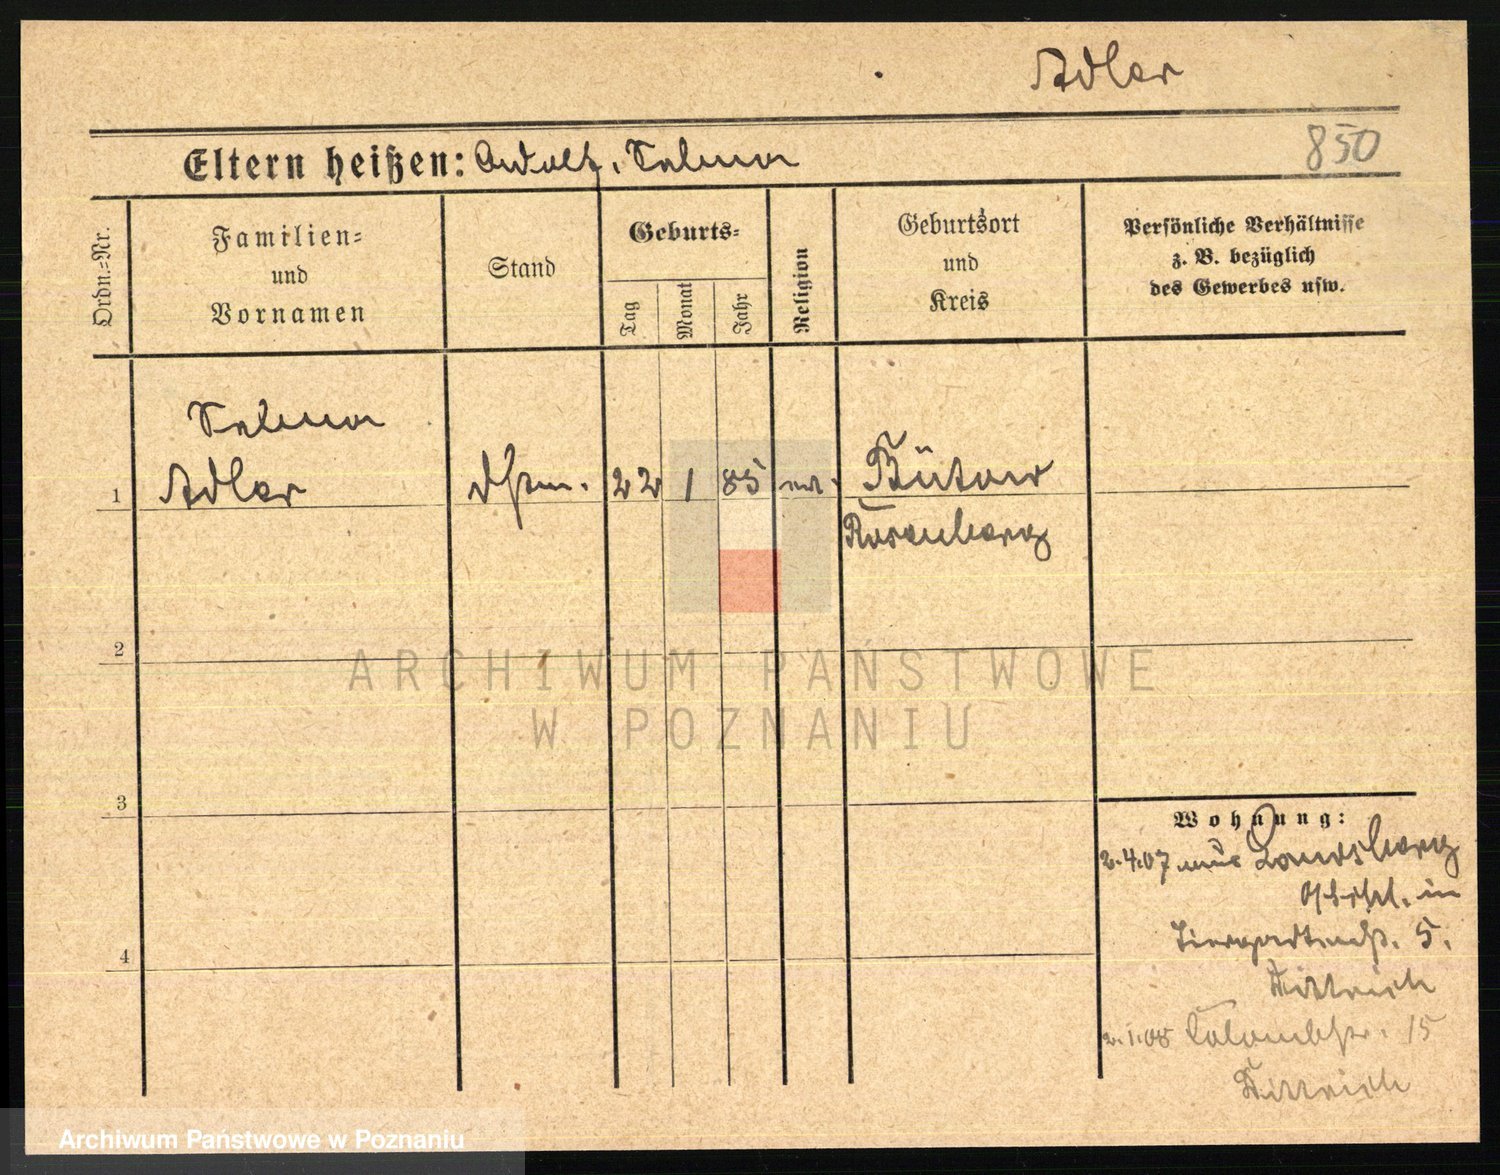 Adler
850
Eltern heißen: Adolf, Selma
Ordn.-Nr.
Familien-
und
Vornamen
Stand
Geburts-
Tag
Monat
Jahr
Religion
Geburtsort
und
Kreis
Persönliche Verhältnisse
z. B. bezüglich
des Gewerbes usw.
Selma
1 Adler 22 1 85 Bütow
Rosenberg
2
3
4
Wohnung:
2.4.07 aus Landsberg
in
Tiergartenstr. 5.
Dittrich
2.1.08 15
Dittrich
ARCHIWUM PAŃSTWOWE
W POZNANIU
Archiwum Państwowe w Poznaniu